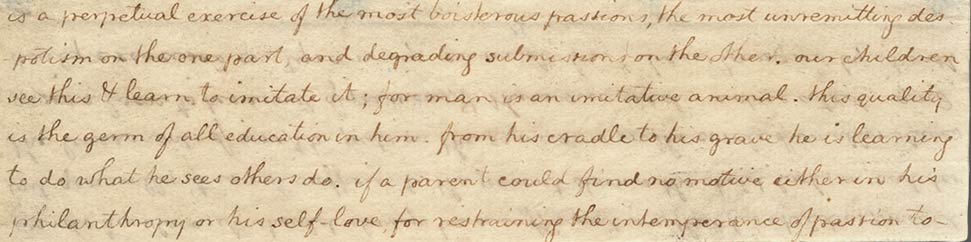 is a perpetual exercise of the most boisterous passions, the most unremitting des
-potism on the one part, and degrading submissions on the other. our children
see this & learn to imitate it; for man is an imitative animal. this quality
is the germ of all education in him. from his cradle to his grave he is learning
to do what he sees others do. if a parent could find no motive either in his
philanthropy or his self-love, for restraining the intemperance of passion to-